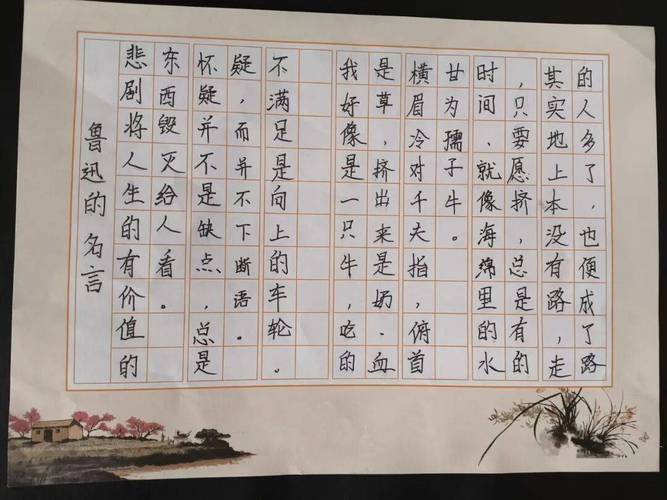 鲁迅的名言
悲剧将人生的有价值的
东西毁灭给人看。
怀疑并不是缺点，总是
疑，而并不下断语。
不满足是向上的车轮。
我好像是一只牛，吃的
是草，挤出来是奶、血
横眉冷对千夫指，俯首
甘为孺子牛。
时间、就像海绵里的水
，只要愿挤，总是有的
其实地上本没有路，走
的人多了，也便成了路